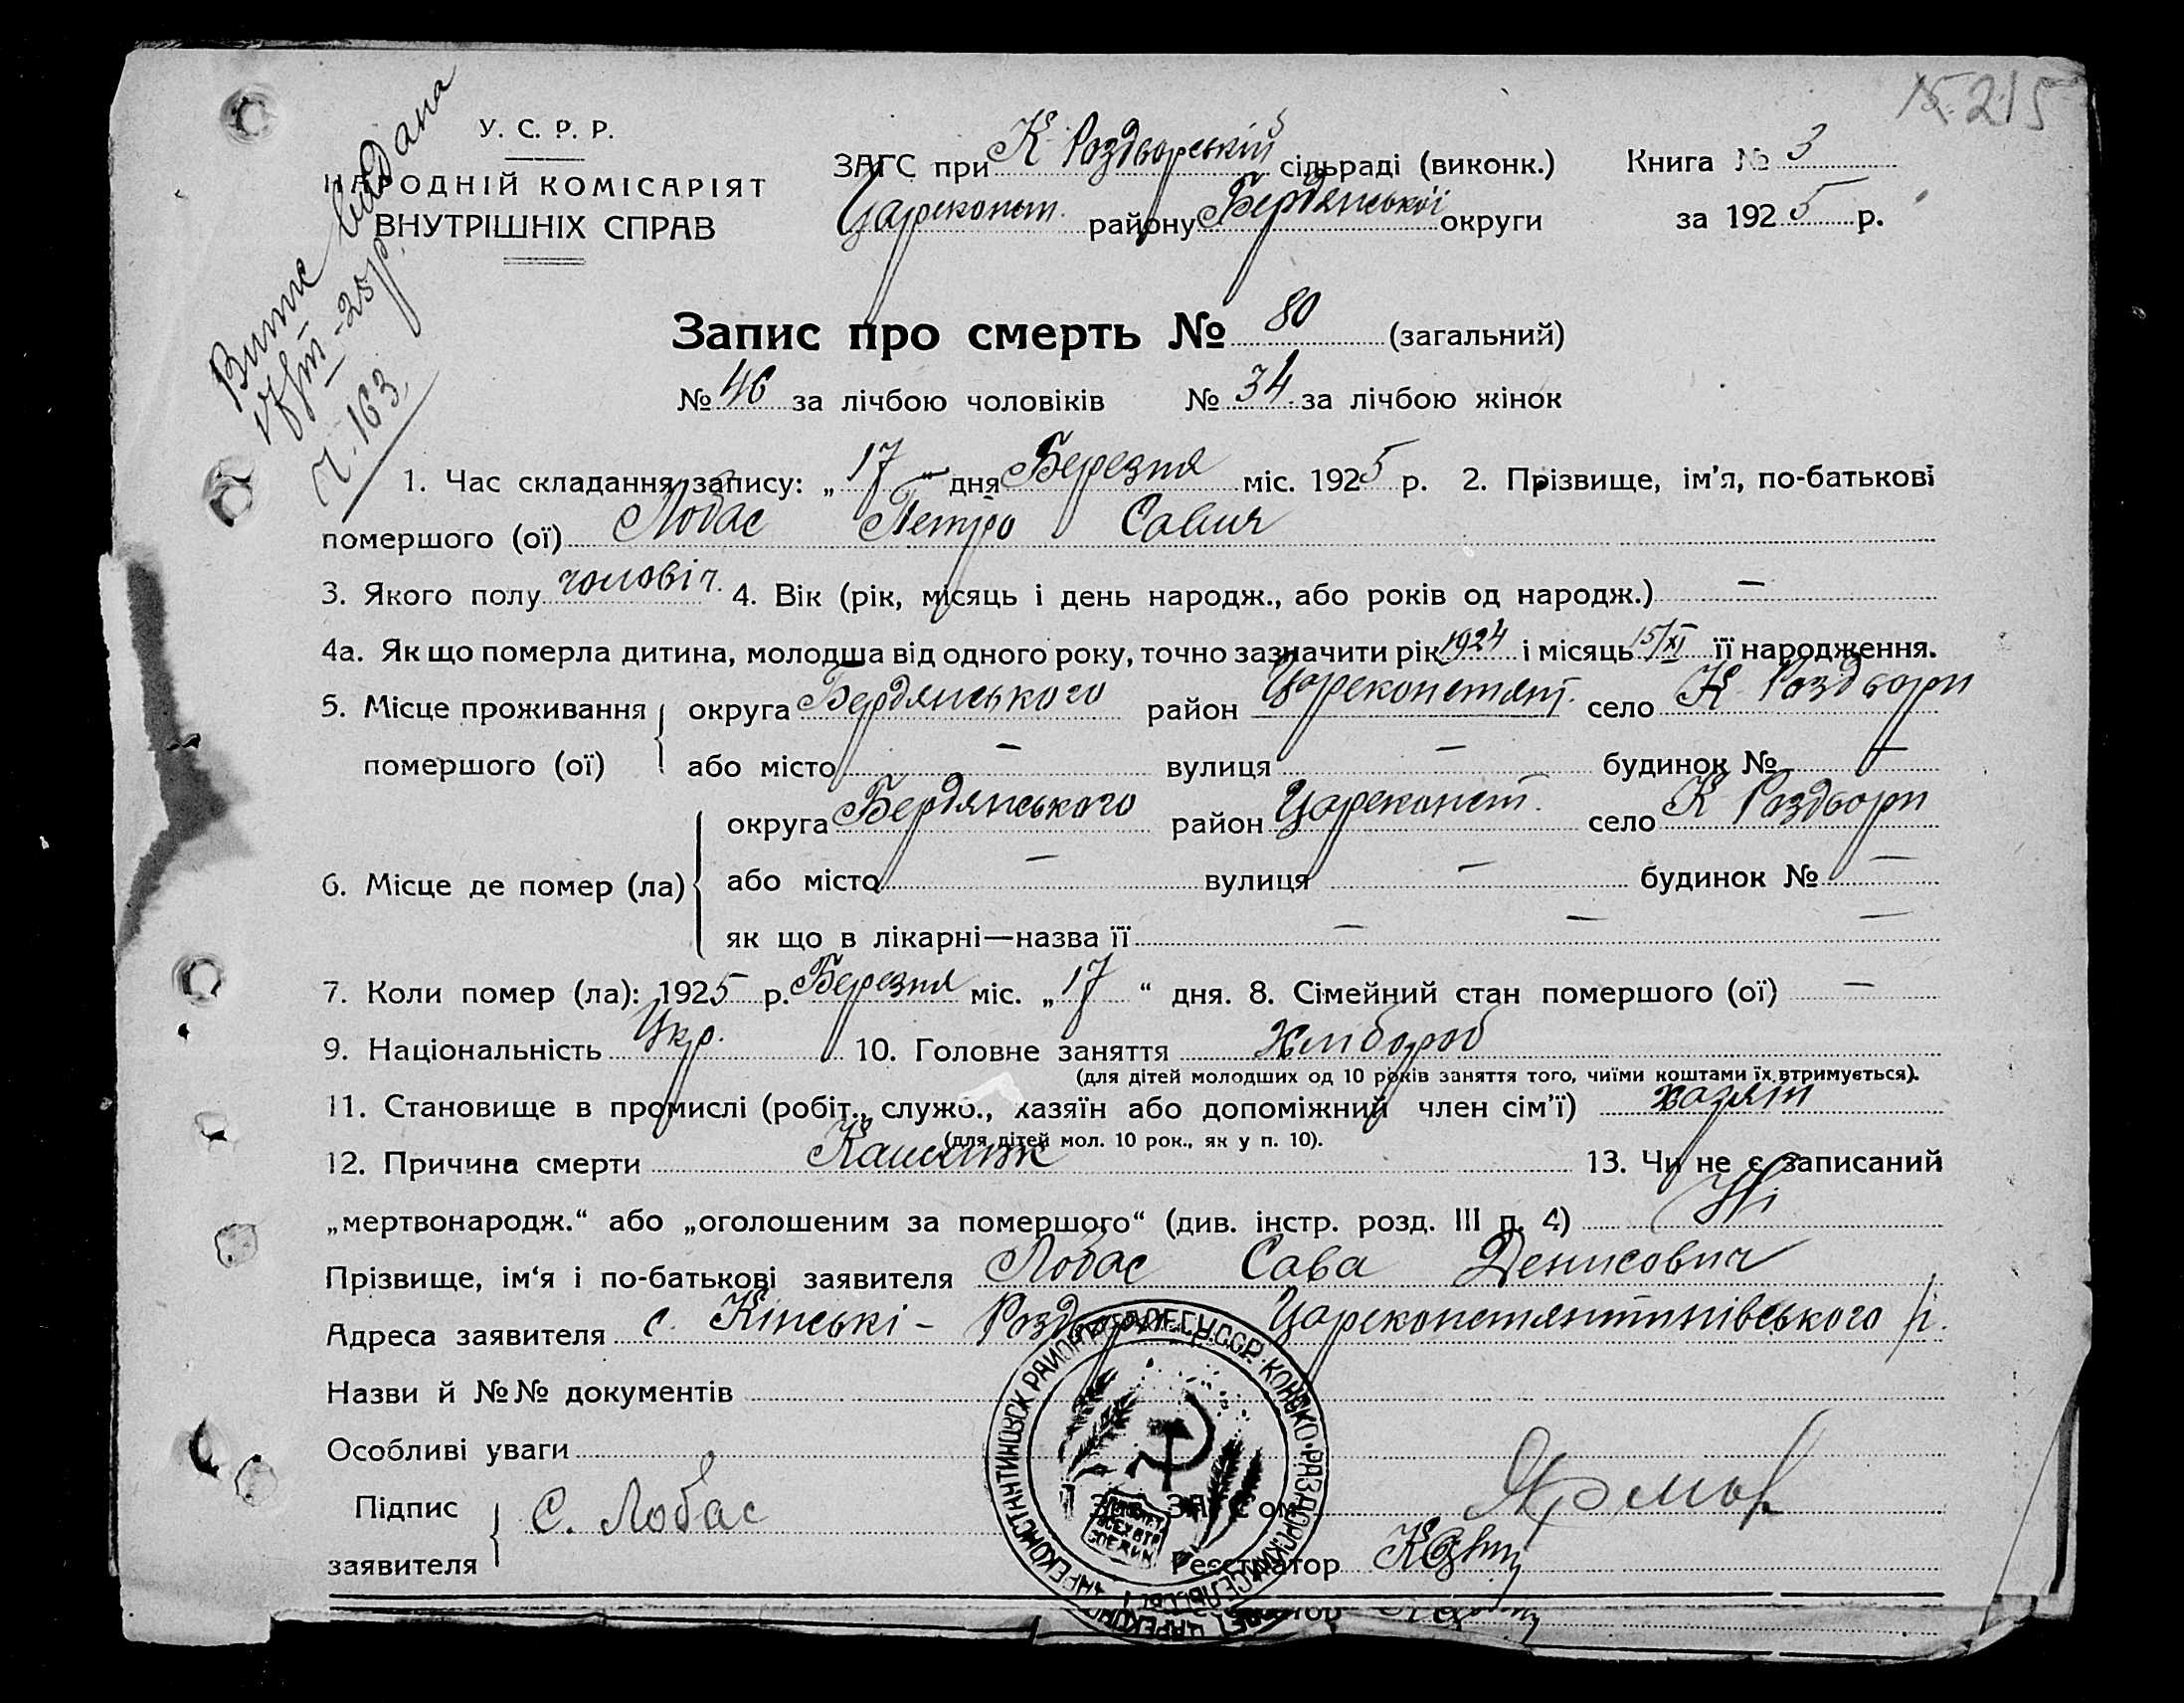 № 215
У. С. Р. Р.
НАРОДНІЙ КОМІСАРІЯТ
ВНУТРІШНІХ СПРАВ
Витяг видана
25 р.
Ч. 163
ЗАГС при К Роздорській сільраді (виконк.) Книга № 3
Цареконст. району Бердянської округи за 1925 р.
Запис про смерть № 80 (загальний)
№ 46 за лічбою чоловіків № 34 за лічбою жінок
1. Час складання запису: „17" дня Березня міс. 1925 р. 2. Прізвище, ім'я, по-батькові
помершого (ої) Лобас Петро Савич
3. Якого полу чоловіч. 4. Вік (рік, місяць і день народж., або років од народж.) —
4а. Як що померла дитина, молодша від одного року, точно зазначити рік 1924 і місяць 15/XI її народження.
5. Місце проживання округа Бердянського район Цареконстянт. село К Роздори
помершого (ої) або місто — вулиця — будинок № —
округа Бердянського район Цареконст. село К Роздори
6. Місце де помер (ла) або місто — вулиця — будинок № —
як що в лікарні—назва її — — —
7. Коли помер (ла): 1925 р. Березня міс. „17“ дня. 8. Сімейний стан помершого (ої) —
9. Національність Укр. 10. Головне заняття Хлібороб
(для дітей молодших од 10 років заняття того, чиїми коштами їх втримується).
11. Становище в промислі (робіт., служб., хазяїн або допоміжний член сім'ї) хазяїн
(для дітей мол. 10 рок., як у п. 10).
12. Причина смерти Кашлюк 13. Чи не є записаний
„мертвонародж.“ або „оголошеним за помершого“ (див. інстр. розд. III п. 4) Ні
Прізвище, ім‘я і по-батькові заявителя Лобас Сава Денисович
Адреса заявителя с. Кінські-Роздори Цареконстянтинівського р.
Назви й №№ документів
Особливі уваги
Підпис
заявителя С. Лобас
Зав. ЗАГС'ом
Реєстратор
УССР КОНСКО-РАЗДОРСКИЙ СЕЛЬСОВЕТ ЦАРЕКОНСТАНТИНОВСК РАЙОН